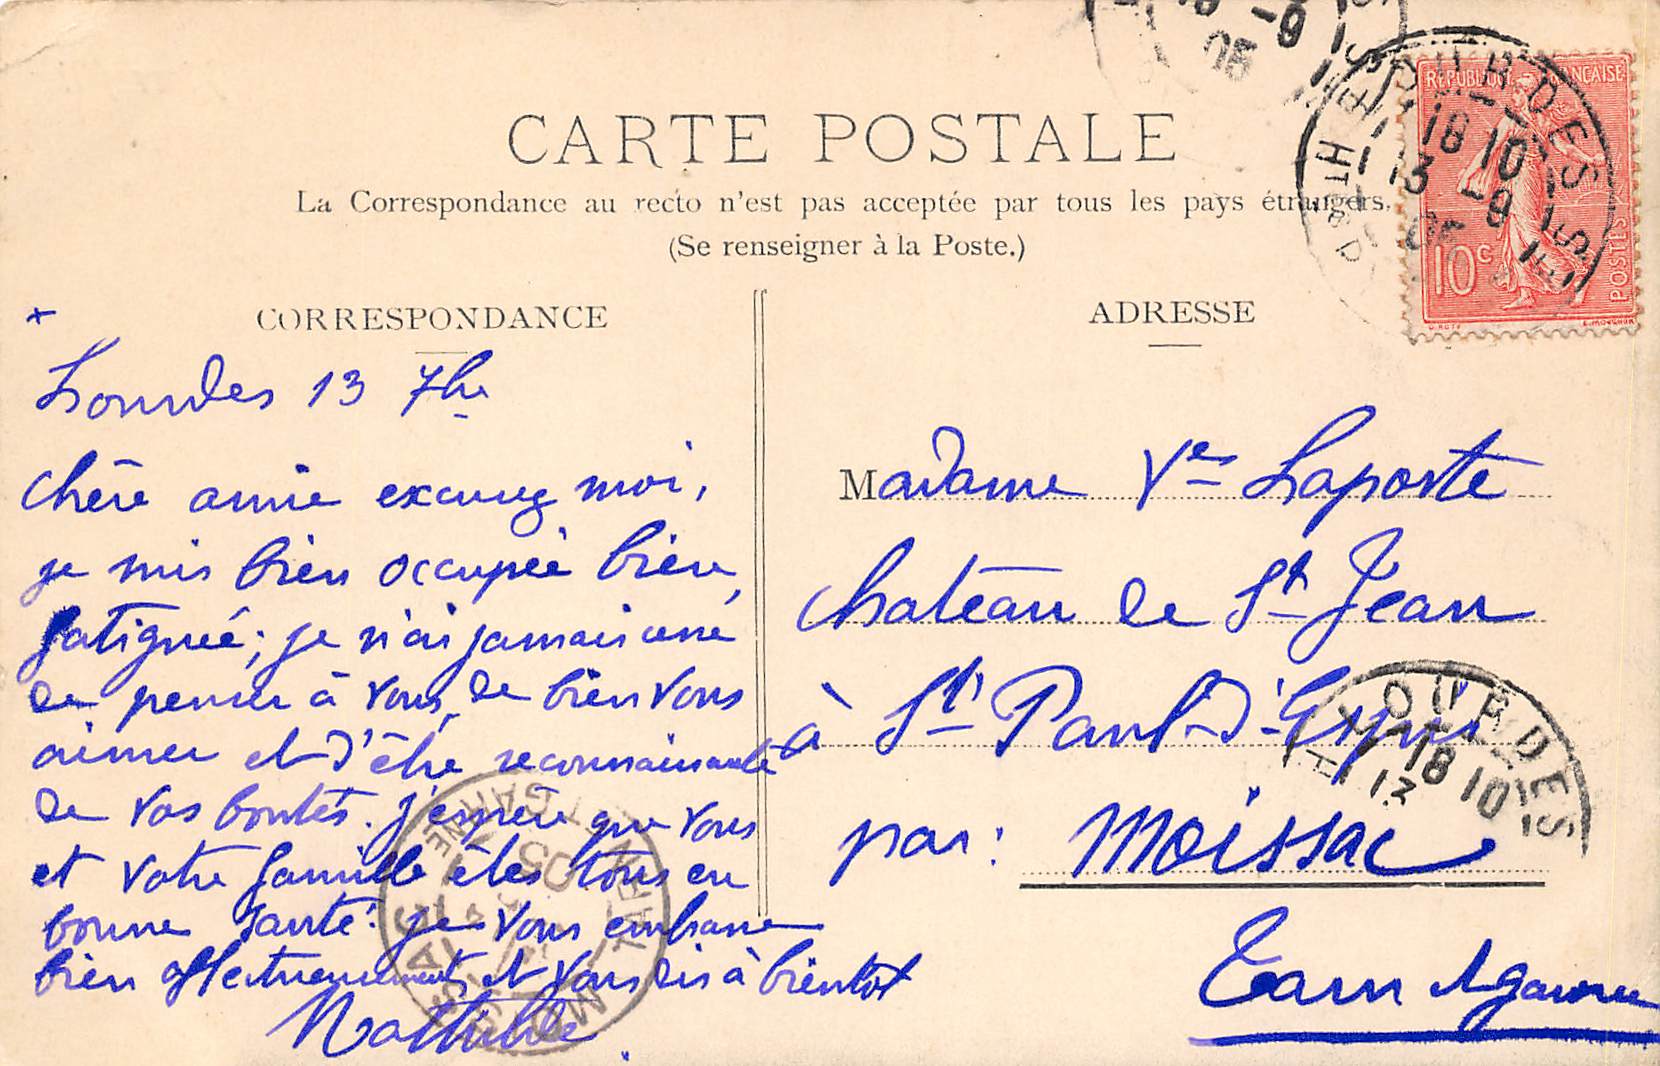 CARTE POSTALE
La Correspondance au recto n'est pas acceptée par tous les pays étrangers.
(Se renseigner à la Poste.)
CORRESPONDANCE
+
Lourdes 13 7bre
Chère amie excusez moi,
je suis bien occupée bien
fatiguée; je n'ai jamais cessé
de penser à vous, de bien vous
aimer et d'être reconnaissante
de vos bontés. j'espère que vous
et votre famille êtes tous en
bonne santé: je vous embrasse
bien affectueusement et vous dis à bientôt
Mathilde
ADRESSE
Madame Vve Laporte
chateau de St Jean
à St Paul-d'Espis
par: Moissac
Tarn et Garonne
RÉPUBLIQUE FRANÇAISE
10c
POSTES
O. ROTY
E. MOUCHON
LOURDES
18 10
13 -9
05
HTES
-9
05
LOURDES
18 10
13
MOISSAC
TARN-ET-GARONNE
05